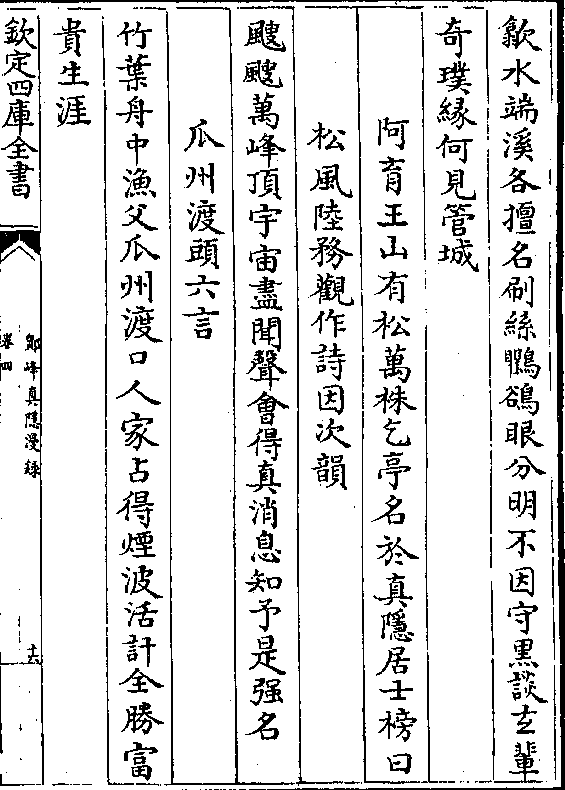 歙水端溪各擅名刷絲鸜鵒眼分明不因守黒談玄輩
奇璞緣何見管城
阿育王山有松萬株乞亭名於真隱居士榜曰
松風陸務觀作詩因次韻
颼颼萬峰頂宇宙盡聞聲會得真消息知予是强名
瓜州渡頭六言
竹葉舟中漁父瓜州渡口人家占得煙波活計全勝富
貴生涯
欽定四庫全書
鄮峰真隱漫録
卷四
十六